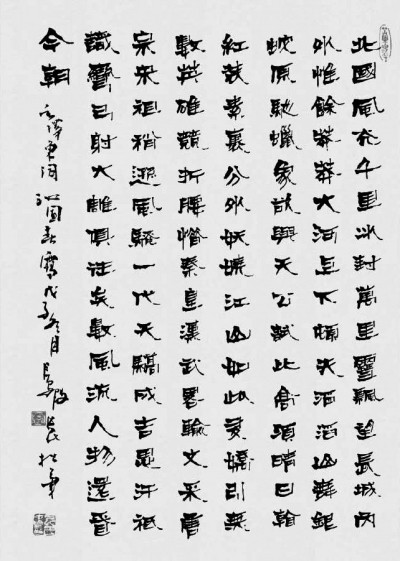 北國風光千里冰封萬里雪飄望長城內
外惟餘莽莽大河上下頓失滔滔山舞銀
蛇原馳蠟象欲與天公試比高須晴日看
紅裝素裹分外妖嬈江山如此多嬌引無
數英雄競折腰惜秦皇漢武略輸文采唐
宗宋祖稍遜風騷一代天驕成吉思汗祇
識彎弓射大雕俱往矣數風流人物還看
今朝 毛澤東詞沁園春雪戊子冬月